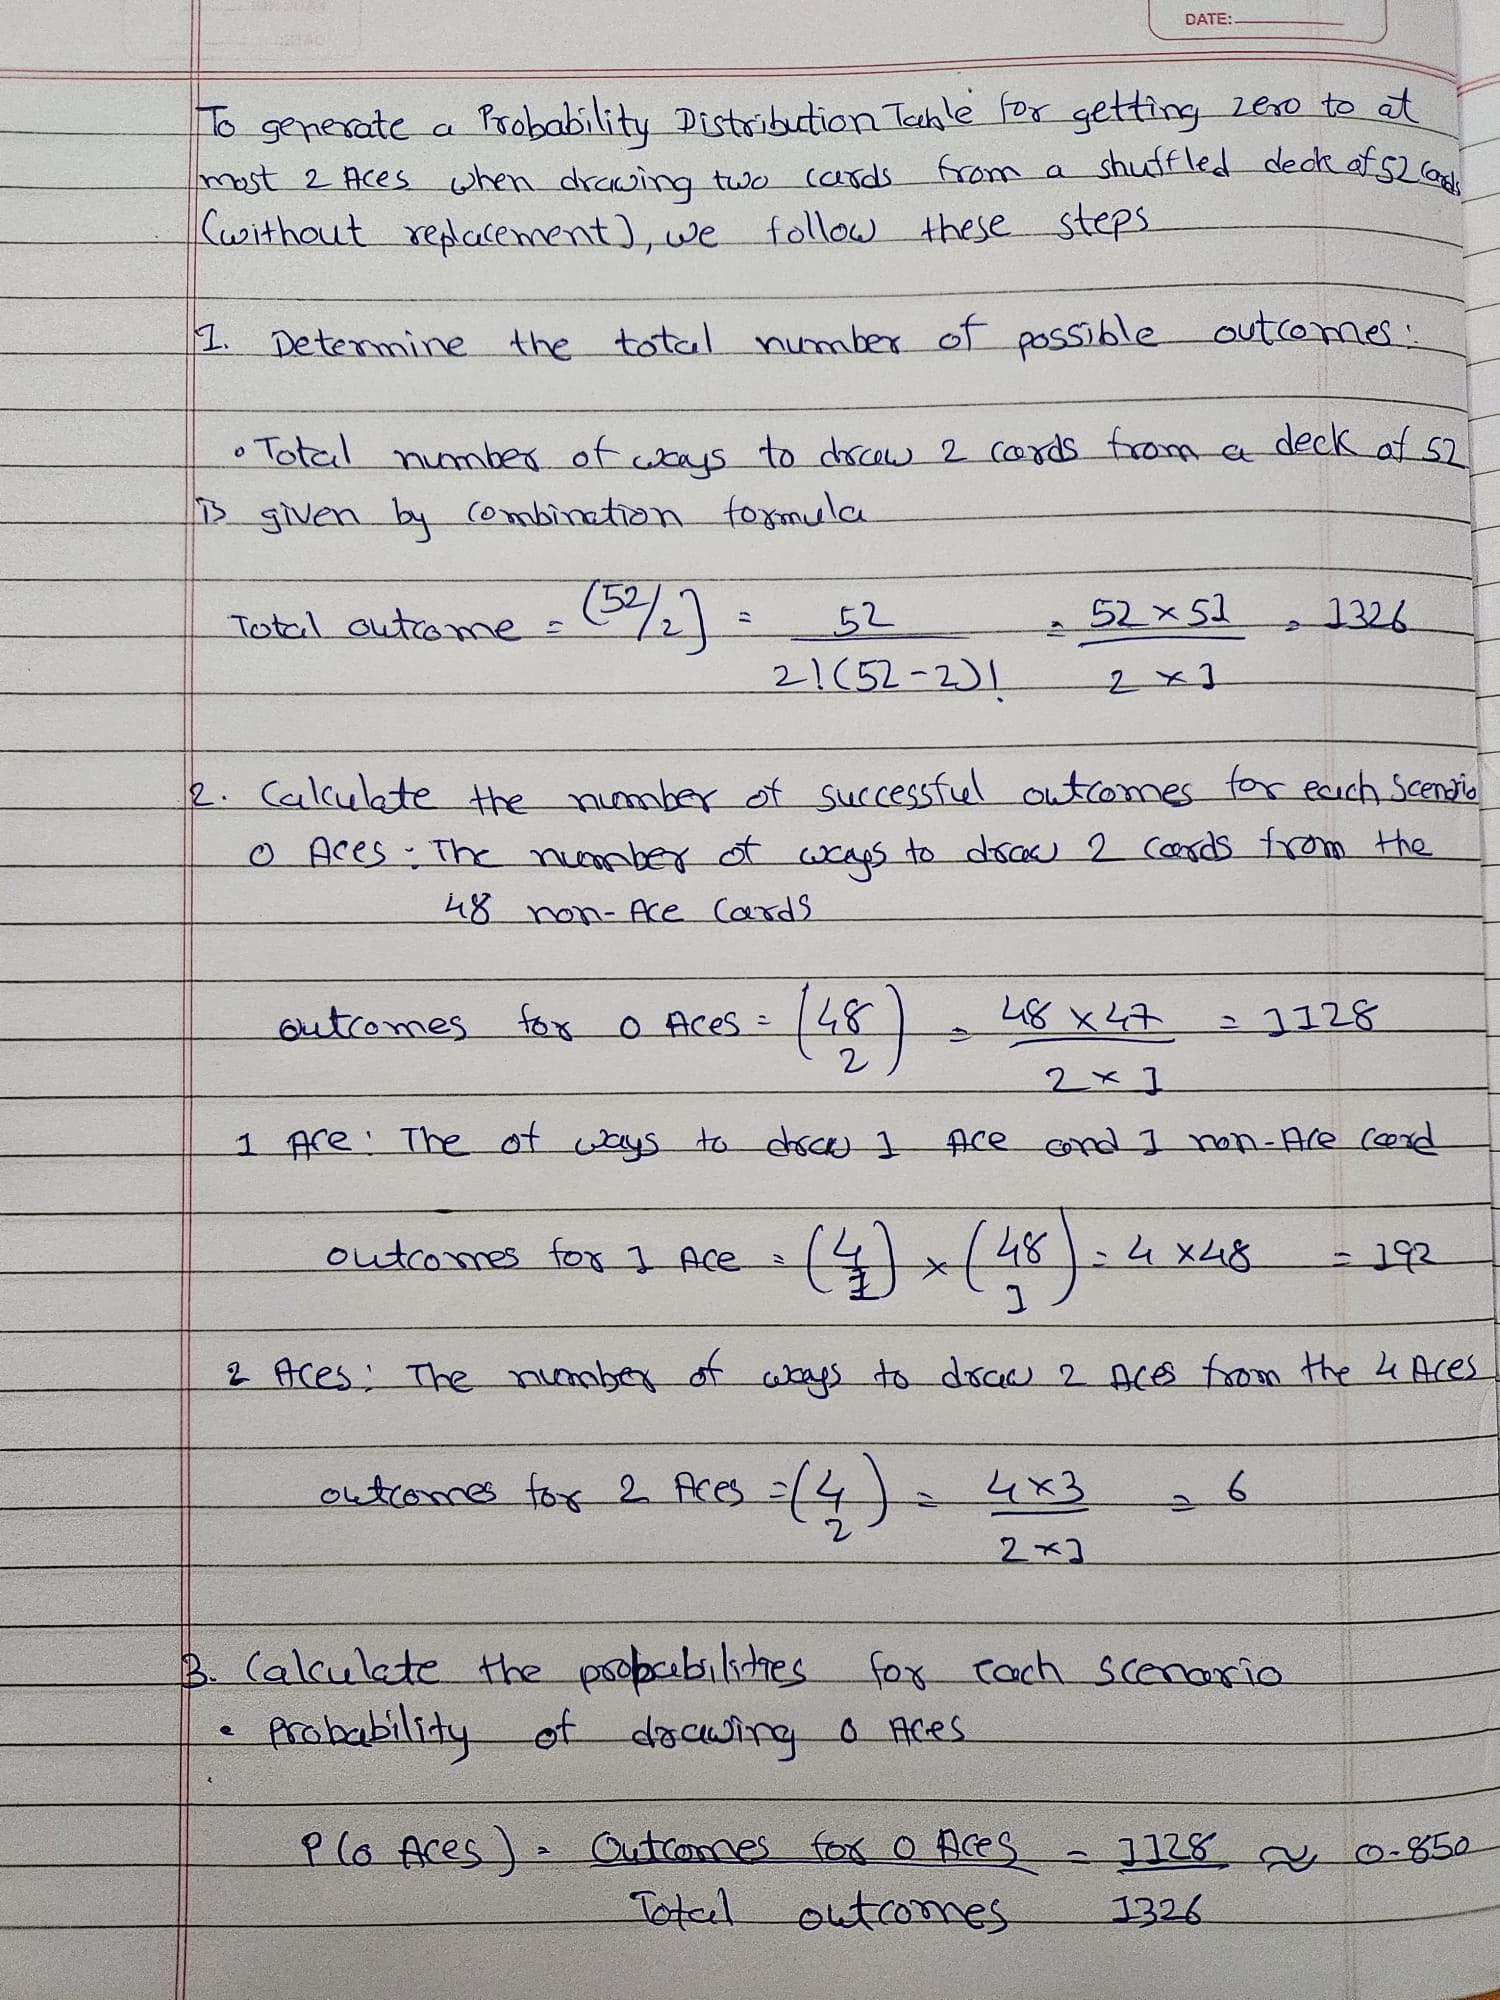 DATE:
To generate a Probability Distribution Table for getting zero to at
most 2 Aces when drawing two cards from a shuffled deck of 52 Cards
(without replacement), we follow these steps
1. Determine the total number of possible outcomes:
• Total number of ways to draw 2 cards from a deck of 52
is given by combination formula
Total outcome = (52/2) = 52 / 2!(52-2)! = 52 × 51 / 2 × 1 = 1326
2. Calculate the number of successful outcomes for each Scenario
0 Aces: The number of ways to draw 2 cards from the
48 non-Ace Cards
outcomes for 0 Aces = (48 2) = 48 × 47 / 2 × 1 = 1128
1 Ace: The of ways to draw 1 Ace and 1 non-Ace card
outcomes for 1 Ace = (4 1) × (48 1) = 4 × 48 = 192
2 Aces: The number of ways to draw 2 Aces from the 4 Aces
outcomes for 2 Aces = (4 2) = 4×3 / 2×1 = 6
3. Calculate the probabilities for each scenario
• Probability of drawing 0 Aces
P(0 Aces) = Outcomes for 0 Aces / Total outcomes = 1128 / 1326 ≈ 0.850